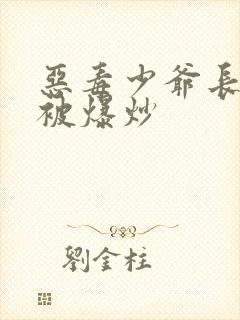 惡毒少爺長
被爆炒
劉金柱